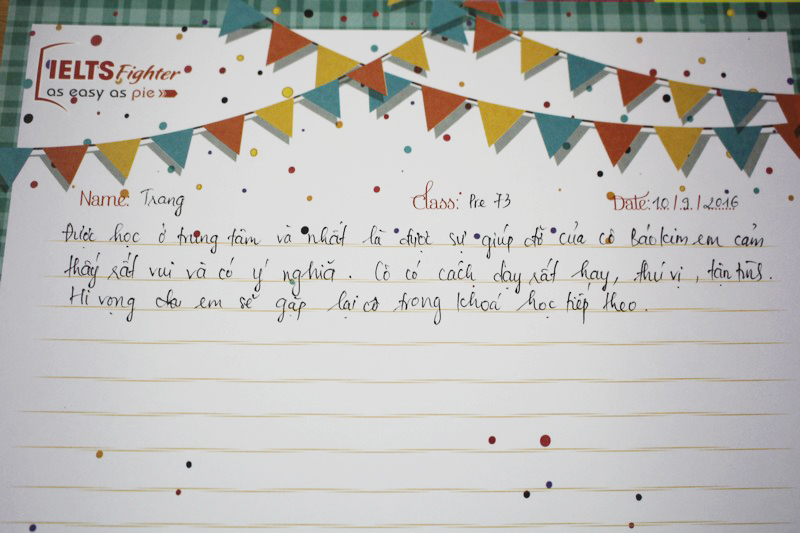 IELTS Fighter
as easy as pie
Name: Trang Class: Pre 73 Date: 10/9/2016
Được học ở trung tâm và nhất là được sự giúp đỡ của cô Bảo Kim em cảm
thấy rất vui và có ý nghĩa. Cô có cách dạy rất hay, thú vị, tận tình.
Hi vọng em sẽ gặp lại cô trong khoá học tiếp theo.